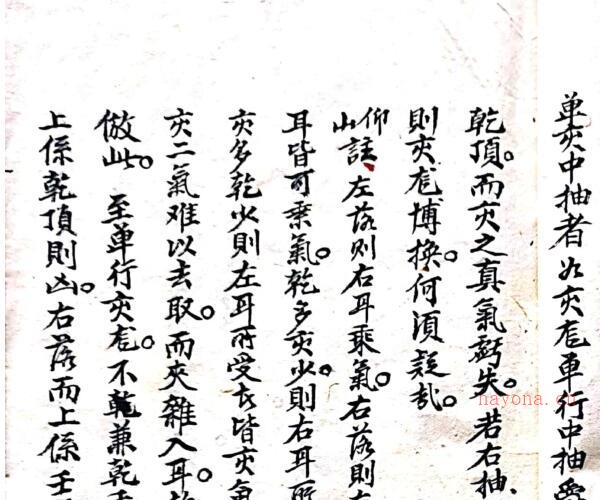 单亥中抽者必亥龙单行中抽
乾頂。而亥之真氣虧失。若右抽
則亥龙博换。何須疑哉。
仰山註左落则右耳乘氣。右落則左
耳皆可乗氣。乾多亥少。則右耳所
亥多乾少則左耳所受者皆亥氣
亥二氣难以去取。而夾雜入耳
倣此。至单行亥龙。不乾兼乾
上係乾頂則凶。右落而上係壬
nayona.cn